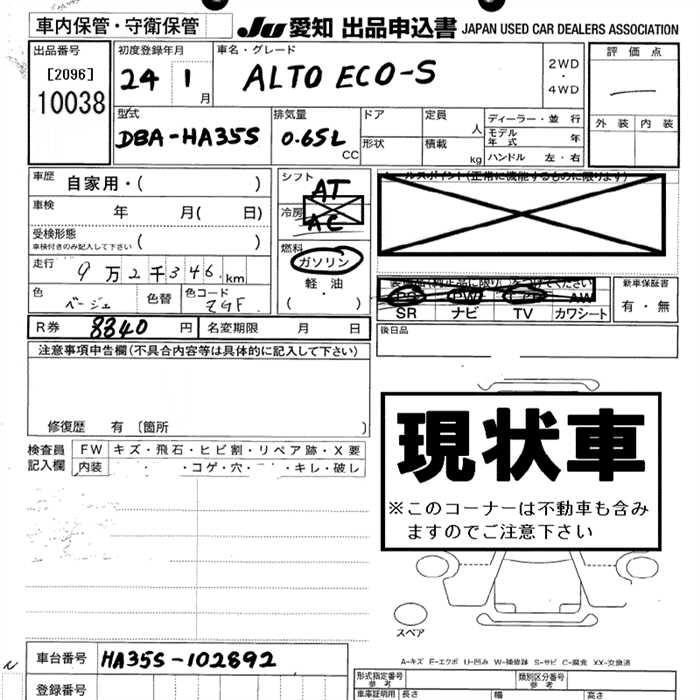 車内保管・守衛保管
JU 愛知 出品申込書 JAPAN USED CAR DEALERS ASSOCIATION
出品番号 初度登録年月 車名・グレード 評価点
[2096] 24 1月 ALTO ECO-S 2WD・4WD
10038 外装 内装
型式 排気量 ドア 定員 人 ディーラー・並行
DBA-HA35S 0.65L CC 形状 積載 kg モデル年式 年
ハンドル 左・右
車歴 自家用・( ) シフト AT
車検 年 月( 日) 冷房 AC
受検形態 ( )
車検付きのみ記入して下さい
燃料 ガソリン
軽油
( ・ )
走行 9万2千346km
色 ベージュ 色替 色コード ZGF
PS PW AW 新車保証書
SR ナビ TV カワシート 有・無
R券 8340円 名変期限 月 日
後日品
注意事項申告欄(不具合内容等は具体的に記入して下さい)
修復歴 有 〔箇所 〕
検査員記入欄 FW キズ・飛石・ヒビ割・リペア跡・X要
内装 ・コゲ・穴・ ・キレ・破レ
現状車
※このコーナーは不動車も含み
ますのでご注意下さい
スペア
A-キズ E-エクボ U-凹み W-補修跡 S-サビ C-腐食 XX-交換済
車台番号 HA35S-102892
登録番号
形式指定番号 参考 類別区分番号 参考
車庫証明用 長さ 幅 高さ